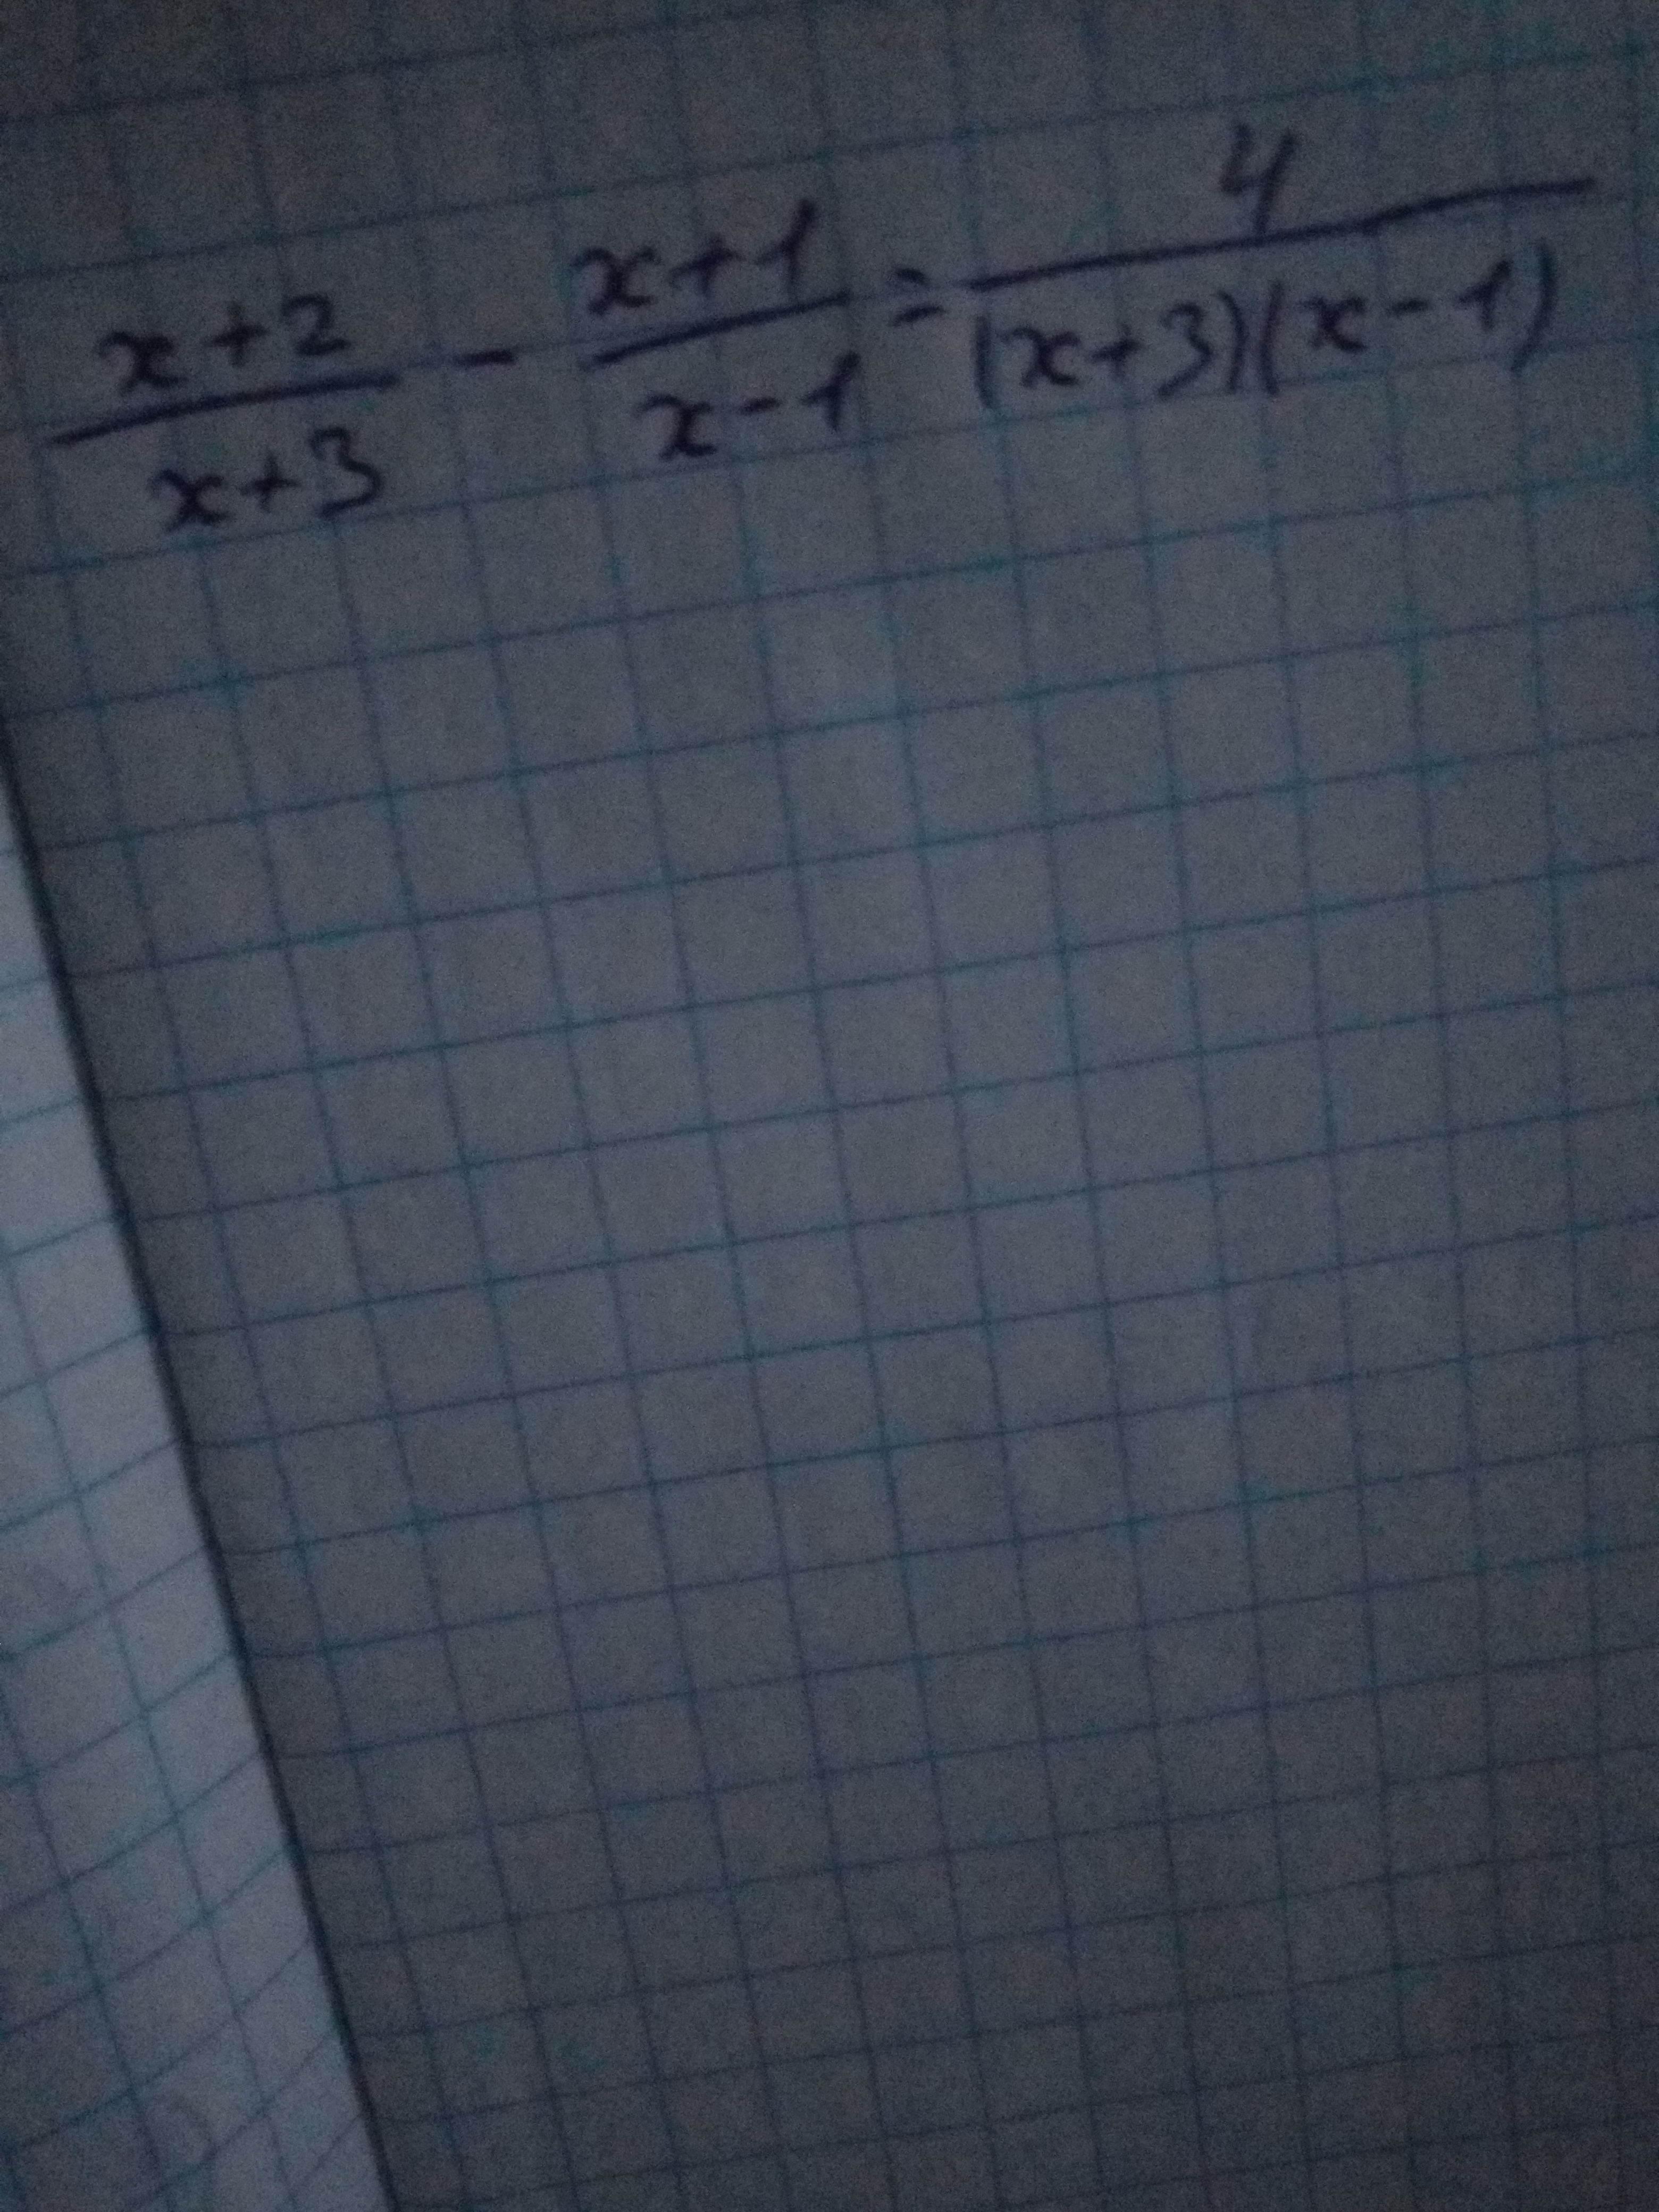 \frac{x+2}{x+3} - \frac{x+1}{x-1} = \frac{4}{(x+3)(x-1)}